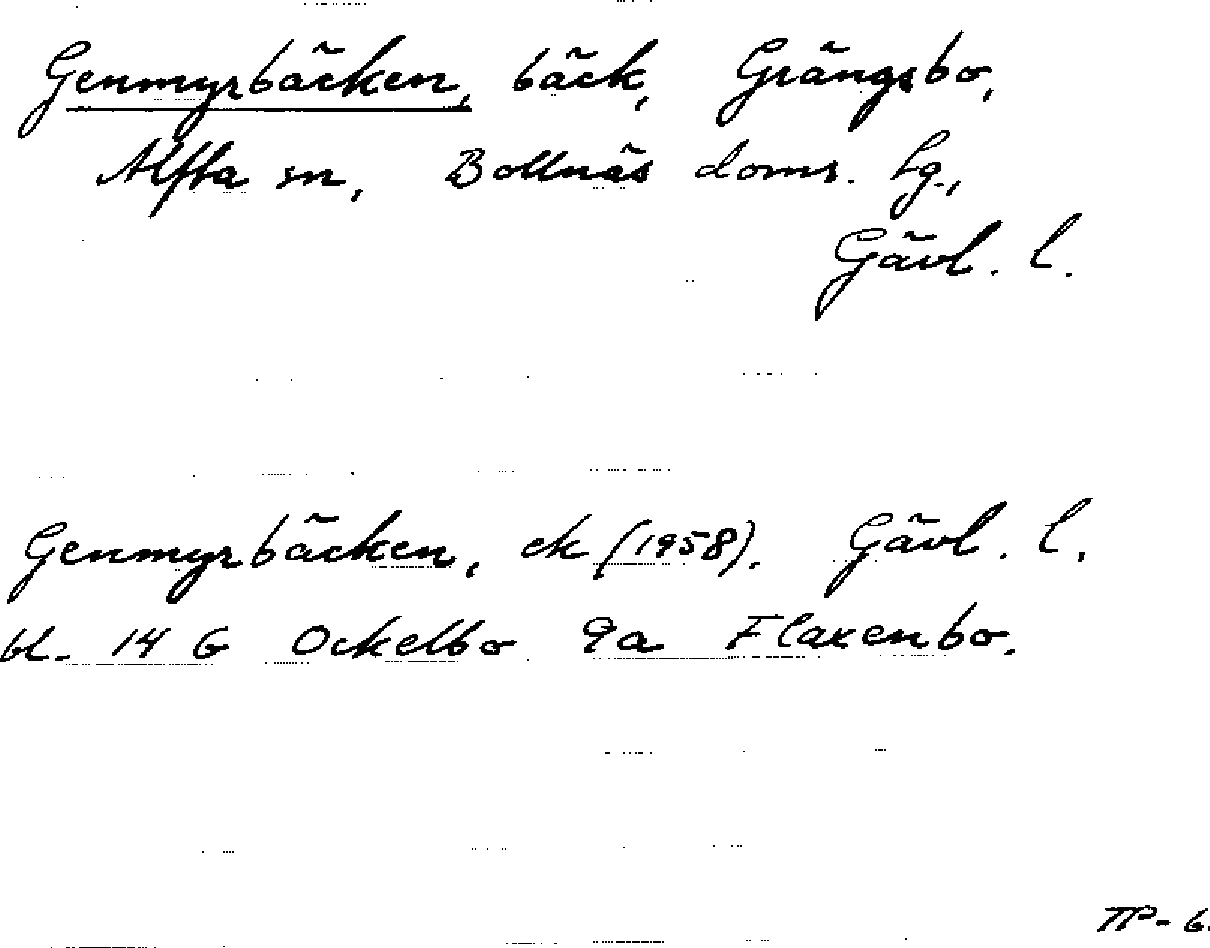 Genmyrbäcken, bäck, Grängsbo,
Alfta sn, Bollnäs doms. hg.,
Gävl. l.
Genmyrbäcken, ek (1958). Gävl. l.
bl. 14 G Ockelbo 9a Flaxenbo.